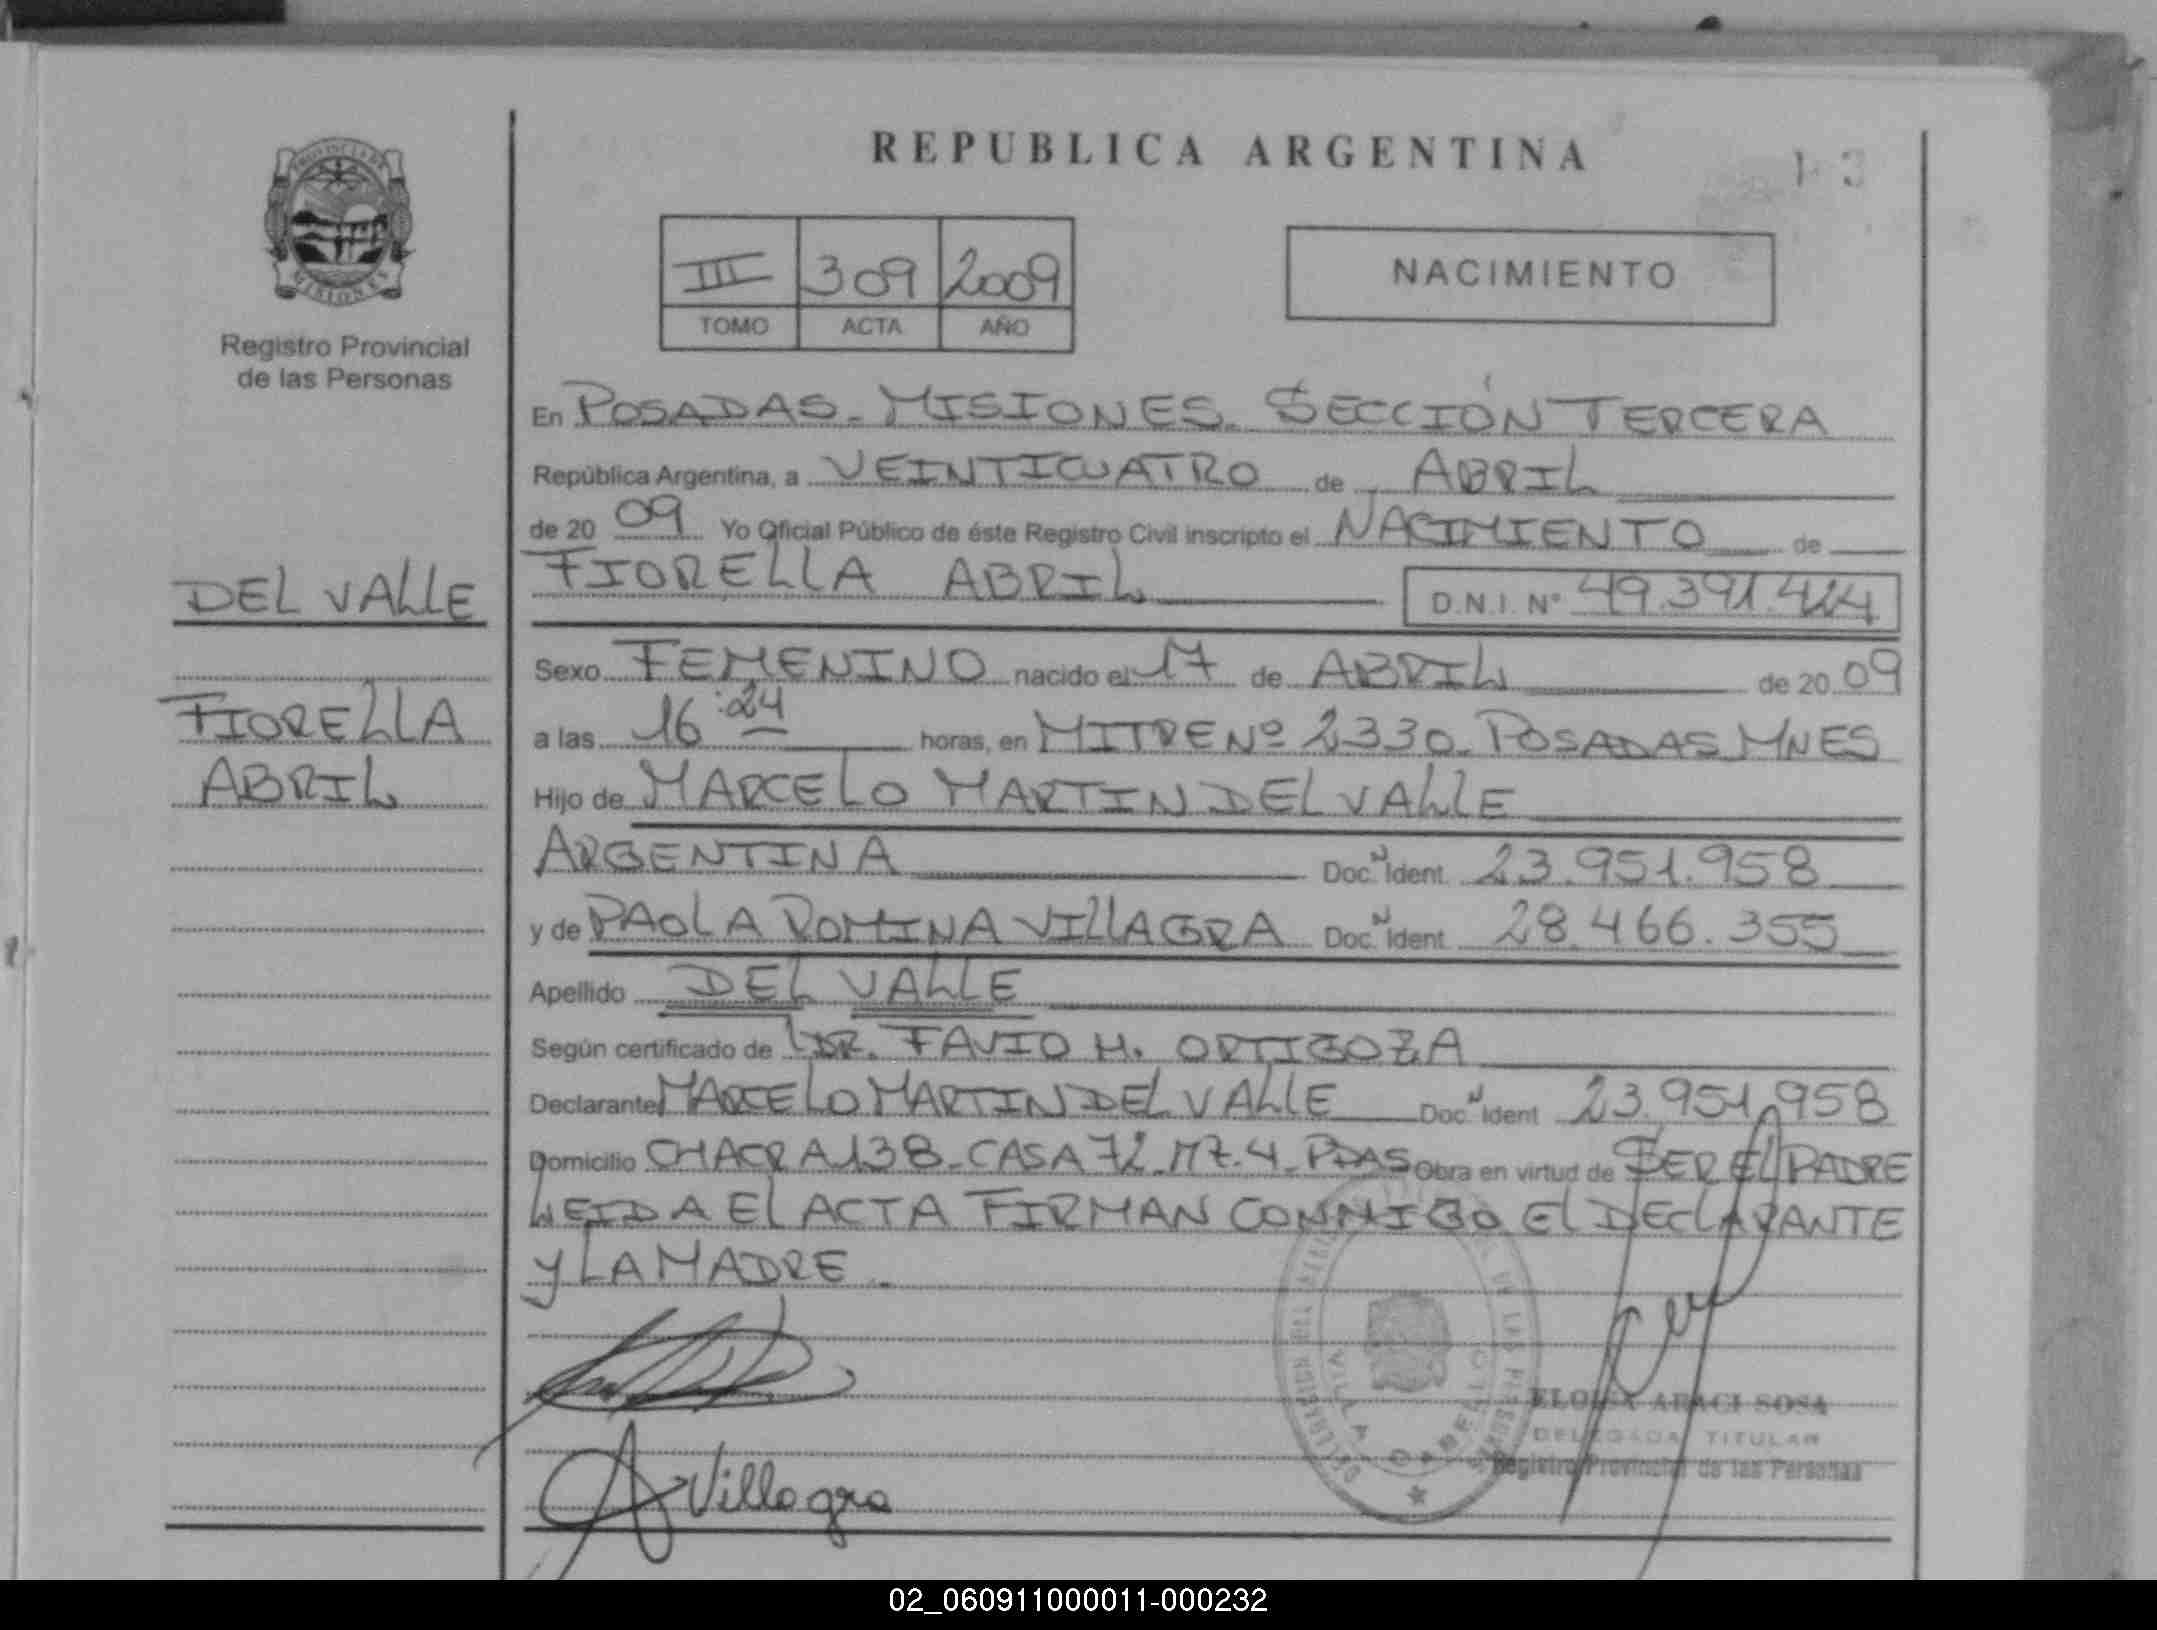 REPUBLICA ARGENTINA
PROVINCIA DE
MISIONES
Registro Provincial
de las Personas
III 309 2009
TOMO ACTA AÑO
NACIMIENTO
En POSADAS - MISIONES - SECCIÓN TERCERA
República Argentina, a VEINTICUATRO de ABRIL
de 20 09 Yo Oficial Público de éste Registro Civil inscripto el NACIMIENTO de
FIORELLA ABRIL D.N.I. Nº 49.391.424
DEL VALLE
FIORELLA
ABRIL
Sexo FEMENINO nacido el 17 de ABRIL de 20 09
a las 16:24 horas, en MITRE Nº 2330 - POSADAS MNES
Hijo de MARCELO MARTIN DEL VALLE
ARGENTINA Doc. N Ident. 23.951.958
y de PAOLA ROMINA VILLAGRA Doc. N Ident. 28.466.355
Apellido DEL VALLE
Según certificado de DR. FAVIO H. ORTIGOZA
Declarante MARCELO MARTIN DEL VALLE Doc. N Ident 23.951.958
Domicilio CHACRA 138 - CASA 72 - MZ. 4 - PDAS Obra en virtud de SER EL PADRE
LEIDA El ACTA FIRMAN CONMIGO El DECLARANTE
y LA MADRE.
ELOISA ARACI SOSA
DELEGADA TITULAR
Registro Provincial de las Personas
Villagra
02_060911000011-000232